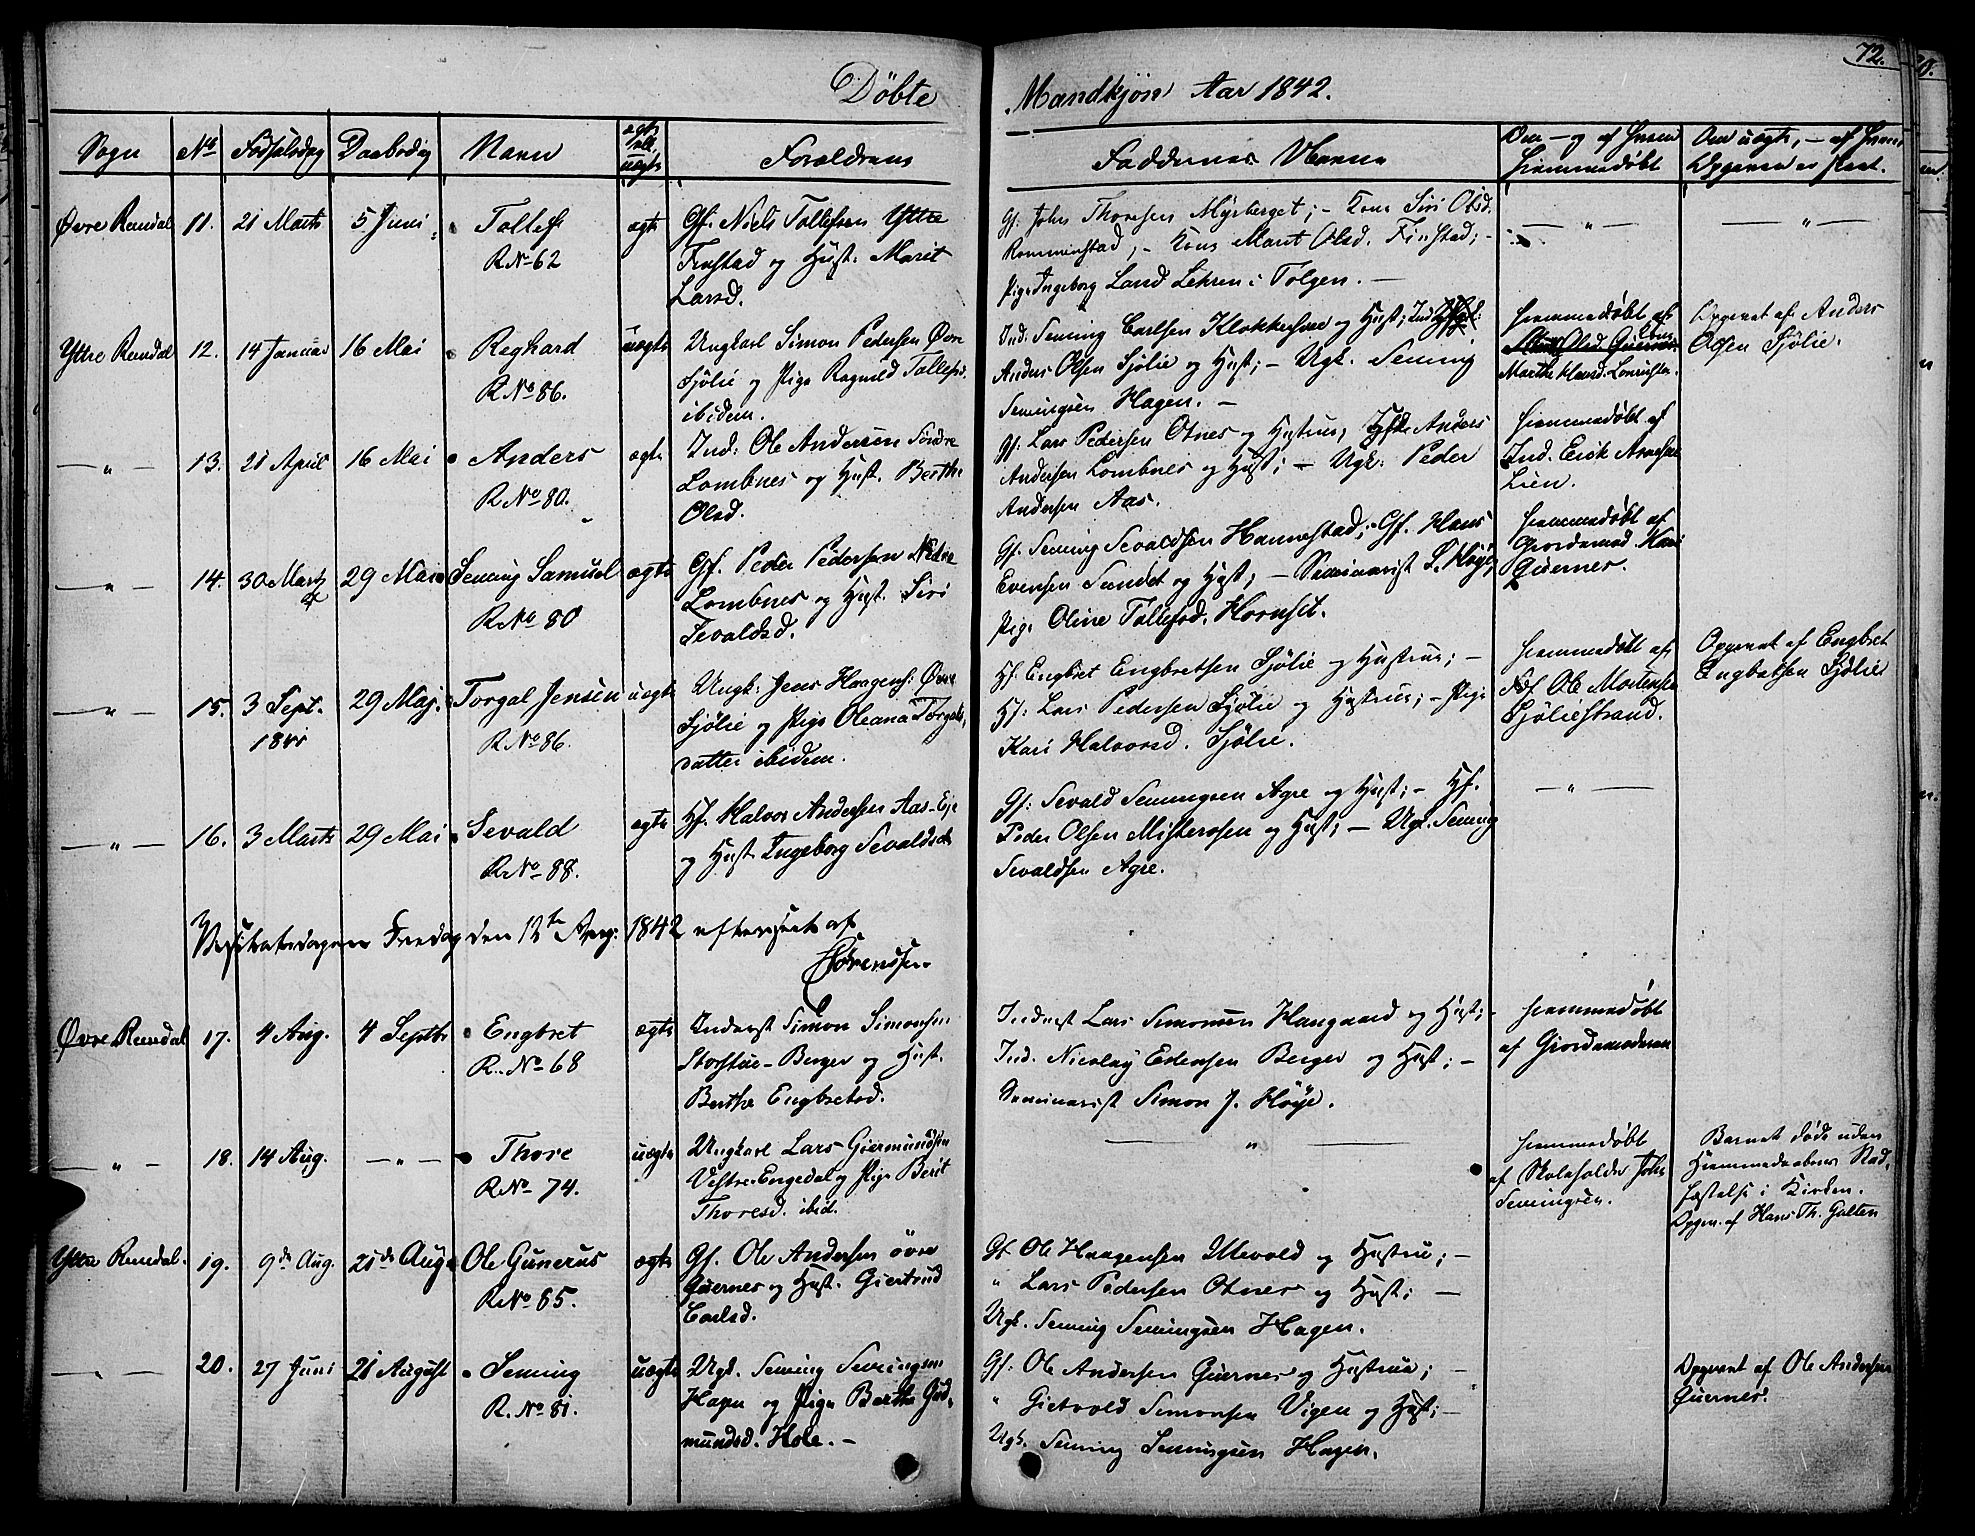 72.
Døbte Mandkjøn Aar 1842.
Sogn No Fødselsdag Daabsdag Navn ægte ell. uægte Forældrene Faddernes Navne Om – og af hvem hjemmedøbt Om uægte, – af hvem Opgaven er skeet.
Øvre Rendal 11. 21 Marts 5 Juni Tollef ægte Gf. Niels Tollefsen Yttre
R No 62 Finstad og Hust: Marit
Larsd.
Gf. John Thoresen Myrberget; – Kone Siri Olsd.
Romminstad; – Kone Marit Olsd. Finstad; –
Pige Ingeborg Land Lehren i Tolgen. –
— „ —
— „ —
Yttre Rendal 12. 14 Januar 16 Mai Reghard uægte Ungkarl Simon Pedersen Øvre
R No 86. Sjölie og Pige Ragnild Tollefsd.
ibidem.
Ind. Seming Carlsen Klokkerhuse og Hust;
Anders Olsen Sjölie og Hust; – Ugk. Seming
Semingsen Hagen. –
hjemmedøbt af
Kone
Marthe Hansd.
Opgivet af Anders
Olsen Sjölie.
— „ — 13. 21 April 16 Mai Anders ægte Ind: Ole Andersen Søndre
R No 80. Lombnes og Hust. Berthe
Olsd.
Gf: Lars Pedersen Otnes og Hustrue; Anders
Andersen Lombnes og Hust; – Ugk: Peder
Andersen Aas.
hjemmedøbt af
Ind. Erik Arnesen
Lien.
— „ — 14. 30 Marts 29 Mai Seming Samuel ægte Gf. Peder Pedersen Nedre
R No 80 Lombnes og Hust. Siri
Sevaldsd.
Gf. Seming Sevaldsen Hannestad; – Gf. Hans
Evensen Sundet og Hust; – Seminarist S. Høye;
Pige Oline Tollefsd. Hornset.
hjemmedøbt af
Giordemod. Kari
Quernes.
— „ — 15. 3 Sept. 29 Maj. Torgal Jensen uægte Ungk: Jens Haagens: Øvre
1841 R No 86. Sjölie og Pige Oleana Torgals,
datter ibidem.
Hf. Engbret Engbretsen Sjölie og Hustrue; –
Hf: Lars Pedersen Sjölie og Hustrue; – Pige
Kari Halvorsd. Sjölie.
hjemmedøbt af
Ole Mortensen
Sjöliestrand.
Opgivet af Engbret
Engbretsen Sjölie
— „ — 16. 3 Marts 29 Mai Sevald ægte Hf. Halvor Andersen Aas-Eje
R No 88. og Hust Ingeborg Sevaldsd.
Gf: Sevald Semingsen Agre og Hust; – Hf.
Peder Olsen Misterosen og Hust; – Ugk. Seming
Sevaldsen Agre.
— „ —
Visitatsdagen Fredag den 12te Aug: 1842 efterseet af
Sørenssen
Øvre Rendal 17. 4 Aug. 4 Septbr Engbret ægte Inderst Simon Simonsen
R. No 68 Storstue-Berger og Hust.
Berthe Engbretsd.
Inderst Lars Simonsen Haugaard og Hust; –
Ind. Nicolay Estensen Berger og Hust; –
Seminarist Simon J. Höye.
hjemmedøbt
af Giordemoderen
— „ — 18. 14 Aug. — „ — Thore uægte Ungkarl Lars Giermundsen
R No 74. Vestre Engedal og Pige Berit
Thoresd. ibid.
— „ —
hjemmedøbt
af Skoleholder John
Semingsen.
Barnet døde uden
Hjemmedaabens Stad,
fæstelse i Kirken.
Opgiv. af Hans Th. Galten
Yttre Rendal. 19. 9de Aug. 21de Aug. Ole Gunerus ægte Gf. Ole Andersen øvre
R No 85. Quernes og Hust. Giertrud
Carlsd.
Gf Ole Haagensen Ullevold og Hustrue; –
„ Lars Pedersen Otnes og Hust; –
Ugk. Seming Semingsen Hagen.
— „ — 20. 27 Juni 21 August Seming uægte Ugk. Seming Semingsen
R. No 81. Hagen og Pige Berthe Gud,
mundsd. Hole. –
Gf: Ole Andersen Quernes og Hustrue; –
„ Gietvold Simonsen Vigen og Hust; –
Ugk. Seming Semingsen Hagen.
Opgivet af Ole Andersen
Quernes.